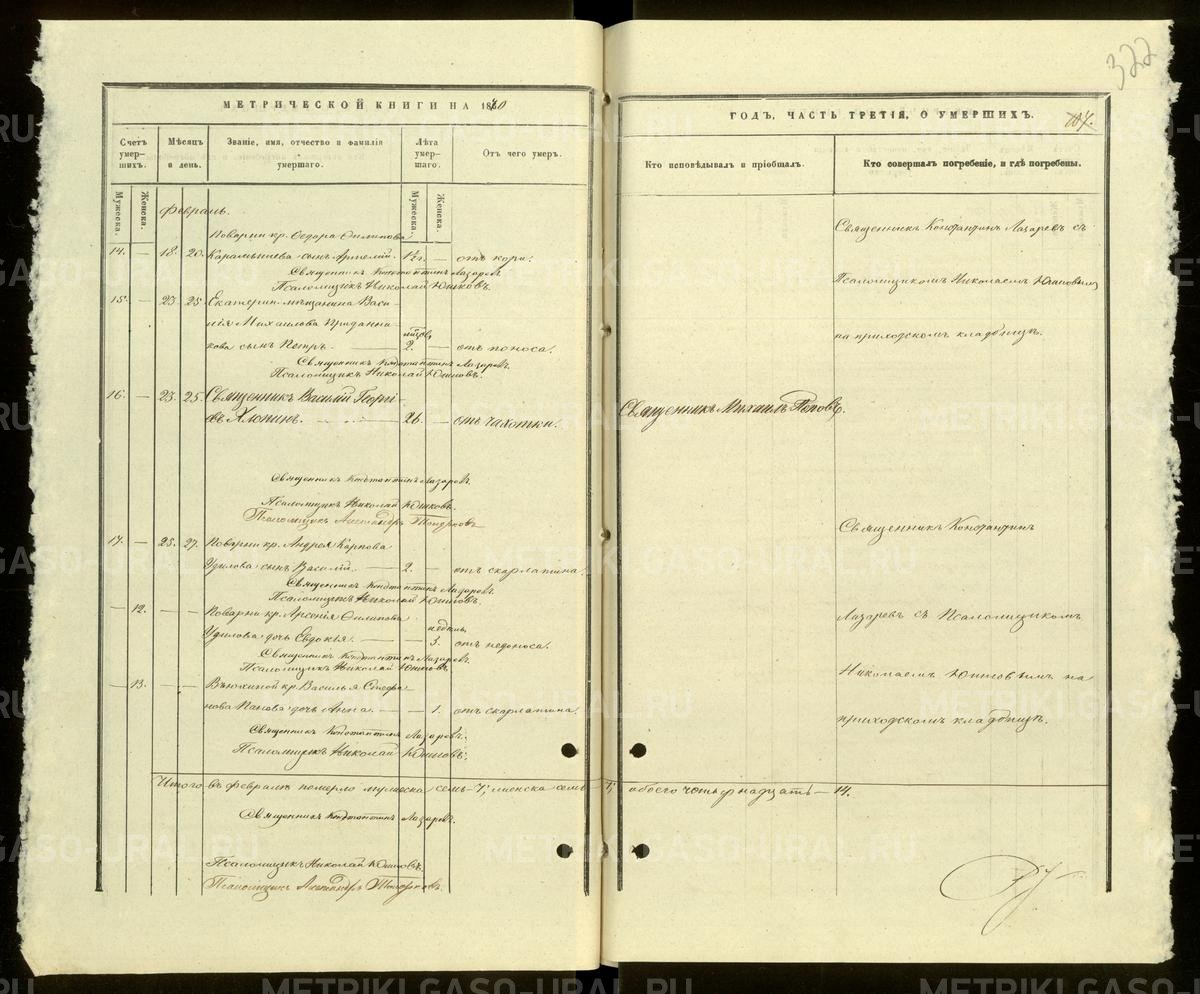 322
МЕТРИЧЕСКОЙ КНИГИ НА 1880
ГОДЪ, ЧАСТЬ ТРЕТІЯ, О УМЕРШИХЪ.
107.
Счетъ умер-шихъ.
Мѣсяцъ и день.
Званіе, имя, отчество и фамилія умершаго.
Лѣта умер-шаго.
Отъ чего умеръ.
Кто исповѣдывалъ и пріобщалъ.
Кто совершалъ погребеніе, и гдѣ погребены.
Мужеска.
Женска.
Мужеска.
Женска.
Февраль.
Поварни кр. Ѳедора Филипова
14. — 18. 20. сынъ — отъ кори.
Священникъ Константинъ Лазаревъ
Псаломщикъ Николай Юшковъ.
15. — 23 25 Екатерин. мѣщанина Васи-
лія Михаилова
кова сынъ Петръ. — 2. — отъ поноса.
Священникъ Константинъ Лазаревъ
Псаломщикъ Николай Юшковъ.
16. — 23. 25. Священникъ Василій Георгі-
евъ Хлопинъ. — 26. — отъ чахотки.
Священникъ Константинъ Лазаревъ.
Псаломщикъ Николай Юшковъ.
Псаломщикъ Александръ
17. — 25. 27. Поварни кр. Андрея Карпова
Удилова сынъ Василій. — 2. — отъ скарлатина.
Священникъ Константинъ Лазаревъ.
Псаломщикъ Николай Юшковъ.
— 12. — — Поварни кр. Арсенія Филипова
недѣль
Удилова дочь Евдокія. — — 3. отъ недоноса.
Священникъ Константинъ Лазаревъ.
Псаломщикъ Николай Юшковъ.
— 13. — — кр. Василья
нова Панова дочь Анна. — — 1. отъ скарлатина.
Священникъ Константинъ Лазаревъ.
Псаломщикъ Николай Юшковъ.
Итого въ февралѣ померло мужеска семь 7, женска семь 7, обоего четырнадцать — 14.
Священникъ Константинъ Лазаревъ.
Псаломщикъ Николай Юшковъ.
Псаломщикъ Александръ
Священникъ Константинъ Лазаревъ съ
Псаломщикомъ Николаемъ Юшковымъ
на приходскомъ кладбищѣ.
Священникъ Михаилъ Поповъ.
Священникъ Константинъ
Лазаревъ съ Псаломщикомъ
Николаемъ Юшковымъ на
приходскомъ кладбищѣ.
METRIKI.GASO-URAL.RU